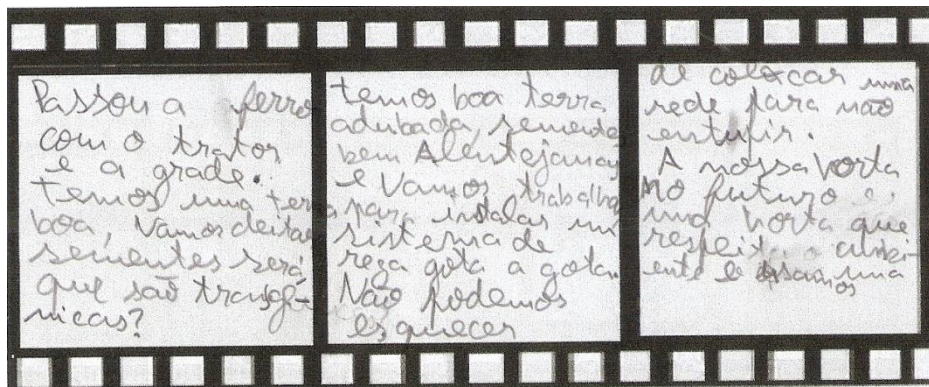 Passou a ferro
com o trator
e a grade.
temos uma terra
boa, Vamos deitar
sementes será
que são transgé-
nicas?
temos boa terra
adubada, sementes
bem Alentejanas
e Vamos trabalhar
para instalar um
sistema de
rega gota a gota.
Não podemos
esquecer
de colocar uma
rede para não
entupir.
A nossa horta
no futuro é
uma horta que
respeita o ambi-
ente e usamos uma